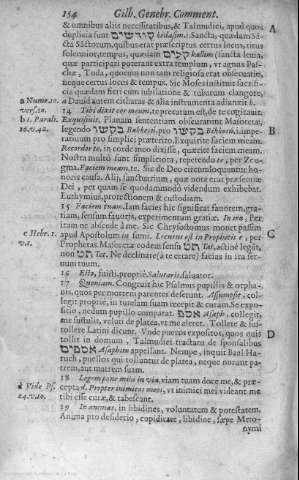 154 Gilb. Genebr. Comment.
& omnibus aliis necessitatibus, & Talmudici, apud quos
duplicia sunt קודשים kedasim: Sancta, quædam Sã-
cta Sãctorum, quibus erat præscriptus certus locus, ritus
solennior, tempus, quædam קלים kallim (sancta leuia,
quæ participari poterant extra templum, vt agnus Pas-
chæ, Toda, quorum non tam religiosa erat obseruatio,
neque certus locus & tempus. Sic Moses instituit sacrifi-
cia quædam fieri cum iubilatione & tubarum clangore,
a Dauid autem citharas & alia instrumenta adiunxit b.
14 Tibi dixit cor meum, te precatum est, de te cogitauit.
Exquisiuit. Planam sententiam obscurarunt Masoretæ,
legendo בקשו Bakkesu, pro בקשו Bikkesu, i. impera-
tiuum pro simplici præterito. Exquirite faciem meam.
Recordor te, in corde meo dixisse, quærite faciem meam.
Nostra multò sunt simpliciora, repetendo te, per Zeu-
gma. Faciem meam, te. Sic de Deo circumloquimur ho-
noris causa. Alij, sanctuarium, quæ nota erat præsentiæ
Dei, per quam se quodammodo videndum exhibebat.
Euthymius, protectionem & custodiam.
15 Faciem tuam, Iam facies hic significat fauorem, gra-
tiam, sensum fauoris, experimentum gratiæ. In ira, Per
iram ne abscede à me. Sic Chrysostomus monet passim
apud Apostolum ἐν sumi. Locutus est in Prophetis c, per
Prophetas. Masoretæ eodem sensu תט Tat, actiuè legût,
non תט Tet. Ne declinare (à te errare) facias in ira ser-
uum tuum.
16 Esto, fuisti, propriè, Salutaris, saluator.
17 Quoniam. Congruit hic Psalmus pupillis & orpha-
nis, quos per mortem parentes deserunt. Assumpsit, col-
legit propriè, in tutelam suam recepit & curam. Se expo-
sitio, nedum pupillo comparat. אסף Asaph, collegit,
me sustulit, veluti de platea, vt me aleret. Tollere & sus-
tollere Latini dicunt. Vnde pueros expositos, quos quis
sustulit in domum suam, Talmudici tractatu de sponsalibus
אסופים Asuphim appellant. Nempe, inquit Baal Ha-
ruch, puellos qui tolluntur de platea, neque norunt pa-
trem, aut matrem suam.
18 Legem pone mihi in via, viam tuam doce me, & præ-
cepta d. Propter inimicos meos, vt inimici mei videant me
tibi esse curæ, & tabescant.
19 In animas, in libidines, voluntatem & potestatem.
Anima pro desiderio, cupiditate, libidine, sæpe Meto-
nymi
a Num. 10.
vers. 10.
b 1. Paral.
16. v. 42.
c Hebr. 1.
v. 1.
d Vide Ps.
24. v. 10.
A
B
C
D